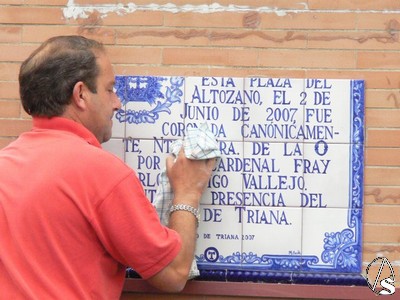 ESTA PLAZA DEL
ALTOZANO, EL 2 DE
JUNIO DE 2007 FUE
CORONADA CANÓNICAMEN-
TE, NTRA. SRA. DE LA O
POR CARDENAL FRAY
VALLEJO,
PRESENCIA DEL
DE TRIANA.
DE TRIANA 2007